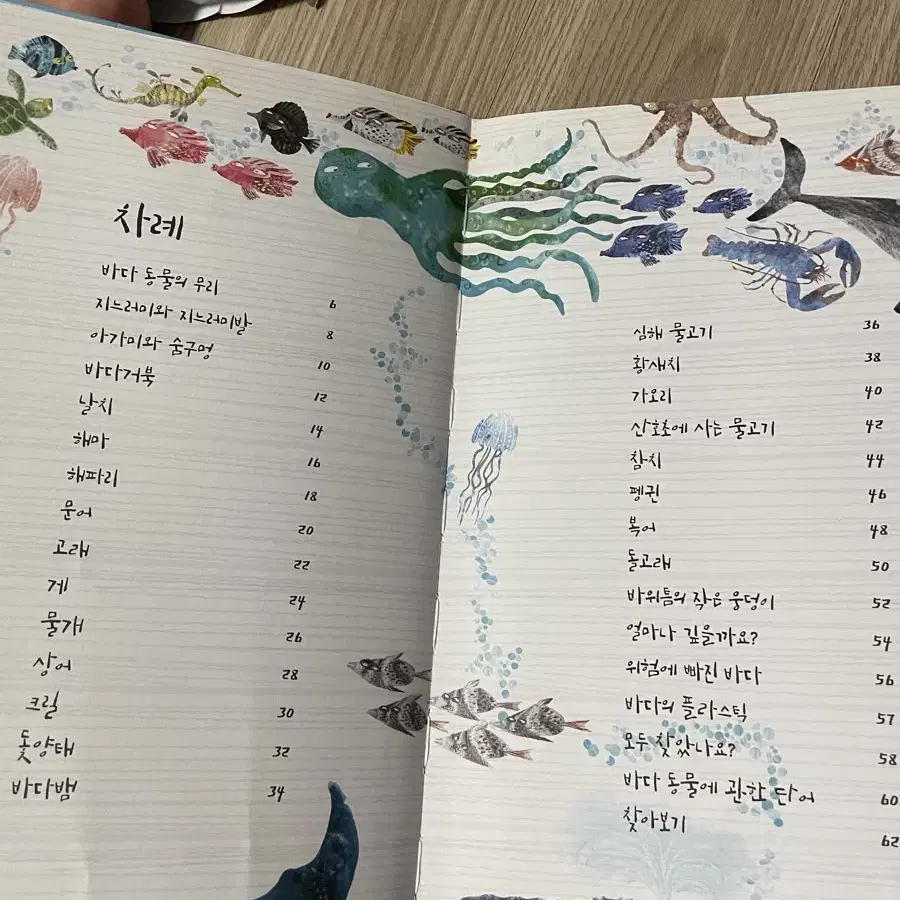 차례
바다 동물의 무리 6
지느러미와 지느러미발 8
아가미와 숨구멍 10
바다거북 12
날치 14
해마 16
해파리 18
문어 20
고래 22
게 24
물개 26
상어 28
크릴 30
돛양태 32
바다뱀 34
심해 물고기 36
황새치 38
가오리 40
산호초에 사는 물고기 42
참치 44
펭귄 46
복어 48
돌고래 50
바위틈의 작은 웅덩이 52
얼마나 깊을까요? 54
위험에 빠진 바다 56
바다의 플라스틱 57
모두 찾았나요? 58
바다 동물에 관한 단어 60
찾아보기 62